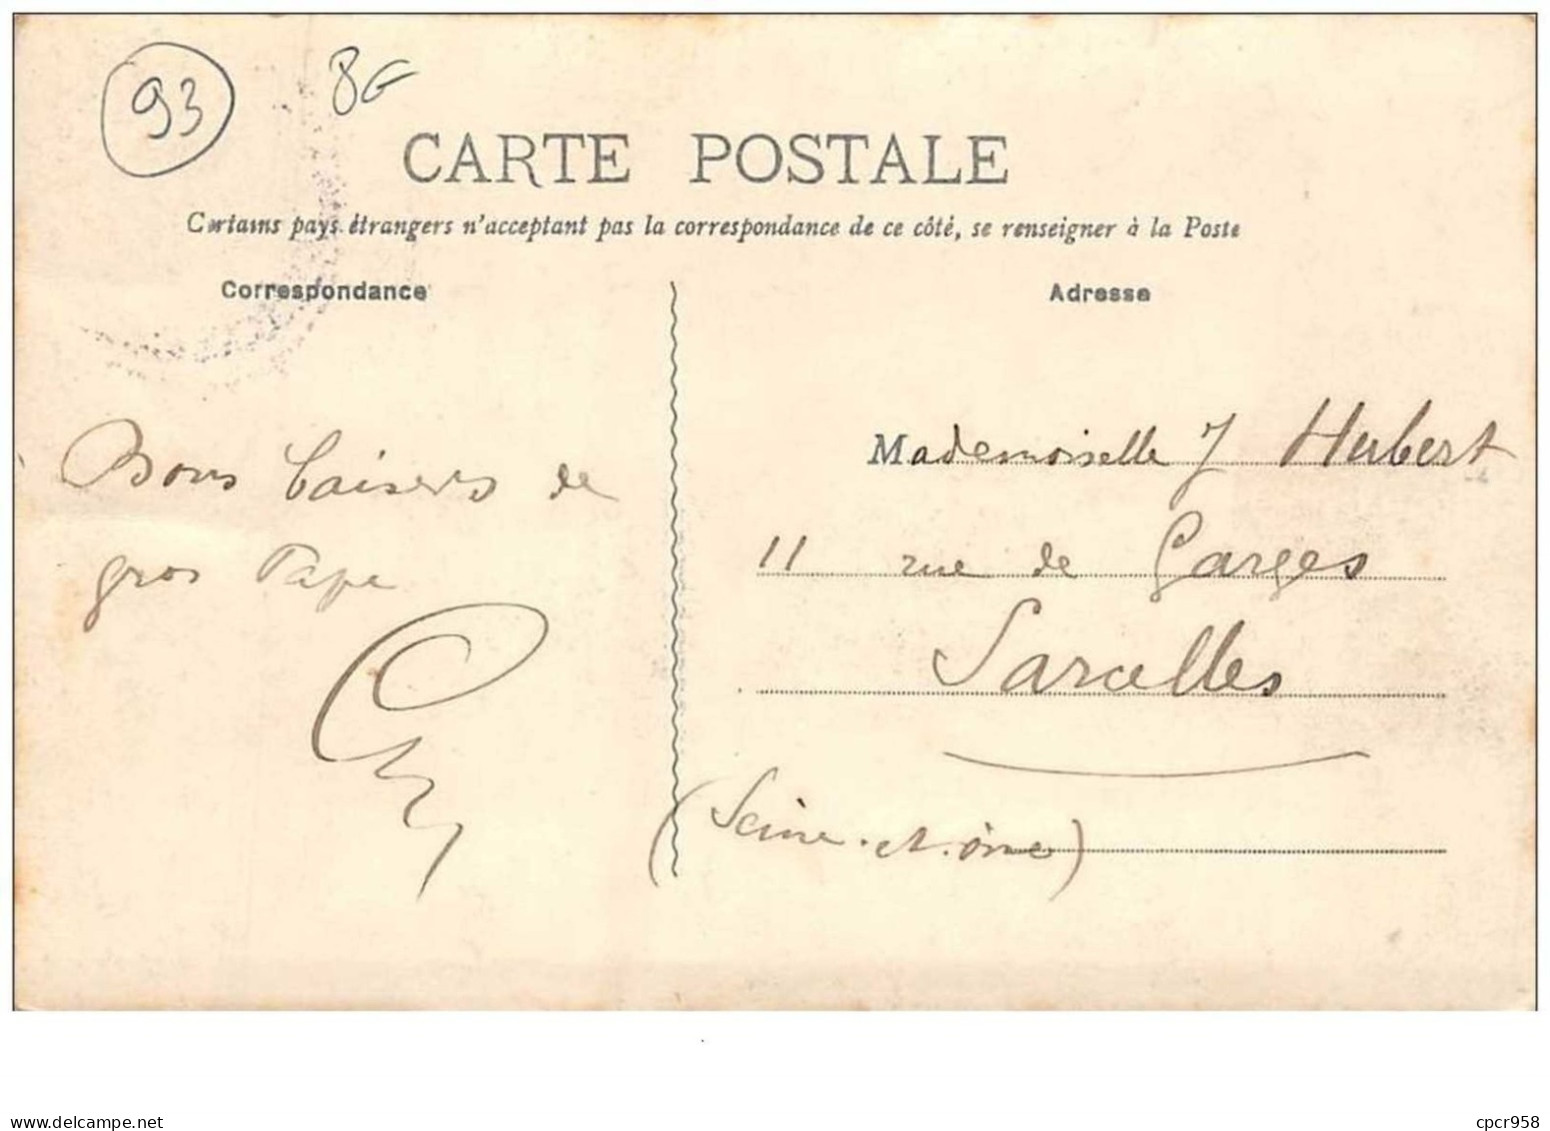 93
8€
CARTE POSTALE
Certains pays étrangers n'acceptant pas la correspondance de ce côté, se renseigner à la Poste
Correspondance
Adresse
Bons baisers de
gros Papa
Mademoiselle J Hubert
11 rue de Garges
Sarcelles
(Seine-et-Oise)
www.delcampe.net
cpcr958